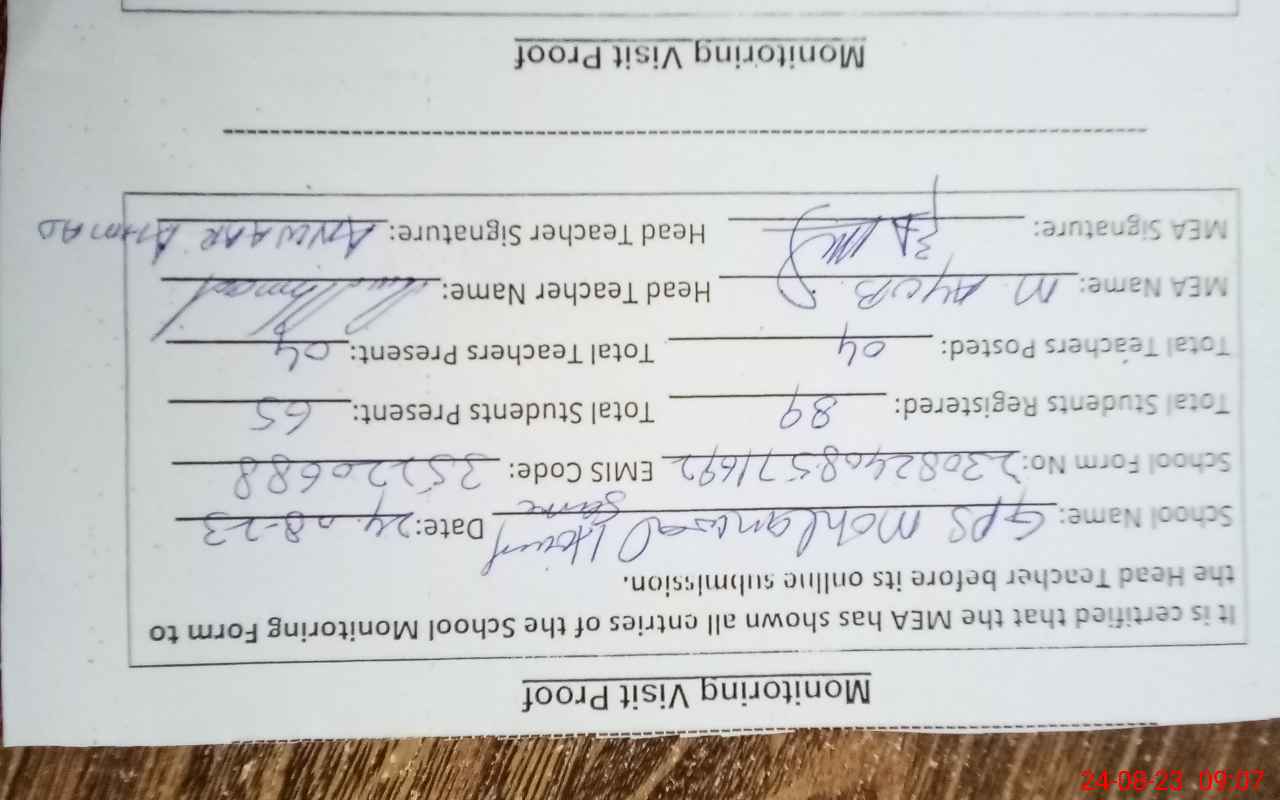 Monitoring Visit Proof
It is certified that the MEA has shown all entries of the School Monitoring Form to
the Head Teacher before its online submission.
School Name: GPS Mohlanwal Date: 24-08-23
School Form No: 23082408571692 EMIS Code: 35220688
Total Students Registered: 89 Total Students Present: 65
Total Teachers Posted: 04 Total Teachers Present: 04
MEA Name: M. AYUB Head Teacher Name:
MEA Signature: Head Teacher Signature: ANWAAR AHMAD
Monitoring Visit Proof
24-08-23 09:07